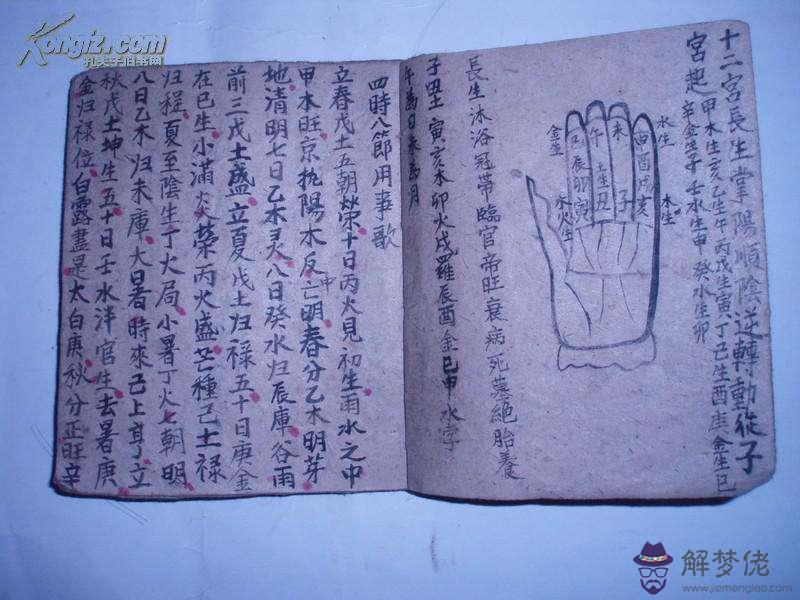 十二宮長生掌陽順陰逆轉動從子
宮起
甲木生亥乙生午丙戊生寅丁己生酉庚金生巳
辛金生子壬水生申癸水生卯
水生
申酉戌亥
木生
未
子
午
土生丑
金生
巳辰卯寅
火生
長生沐浴冠帶臨官帝旺衰病死墓絕胎養
子丑土寅亥木卯火戌羅辰酉金巳申水字
午為日未為月
四時八節用事歌
立春戊土五朝榮十日丙火見初生雨水之中
甲木旺京扰陽木反亡明春分乙木明芽
中
地清明七日乙木灵八日癸水归辰庫谷雨
前三戊土盛立夏戊土归禄五十日庚金
在巳生小滿火榮丙火盛芒種己土禄
归程夏至陰生丁火局小暑丁火七朝明
八日乙木归未庫大暑時來己上亨立
秋戊土坤生五十日壬水洋官生去暑庚
金归禄位白露盡是太白庚秋分正旺辛
Kongfz.com
孔夫子旧书网
解梦佬
www.jiemenglao.com